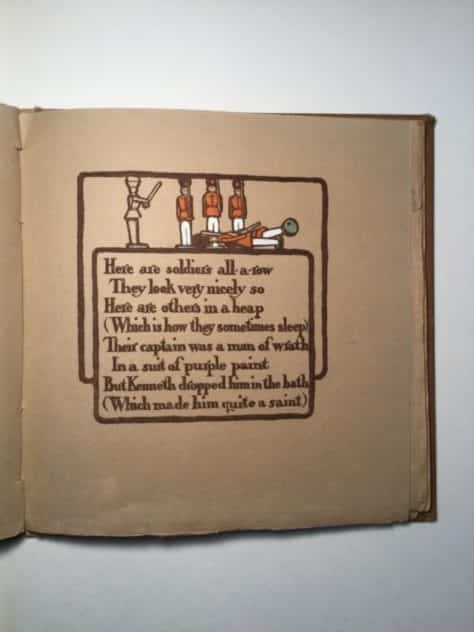 Here are soldiers all-a-row
They look very nicely so
Here are others in a heap
(Which is how they sometimes sleep)
Their captain was a man of wrath
In a suit of purple paint
But Kenneth dropped him in the bath
(Which made him quite a saint)